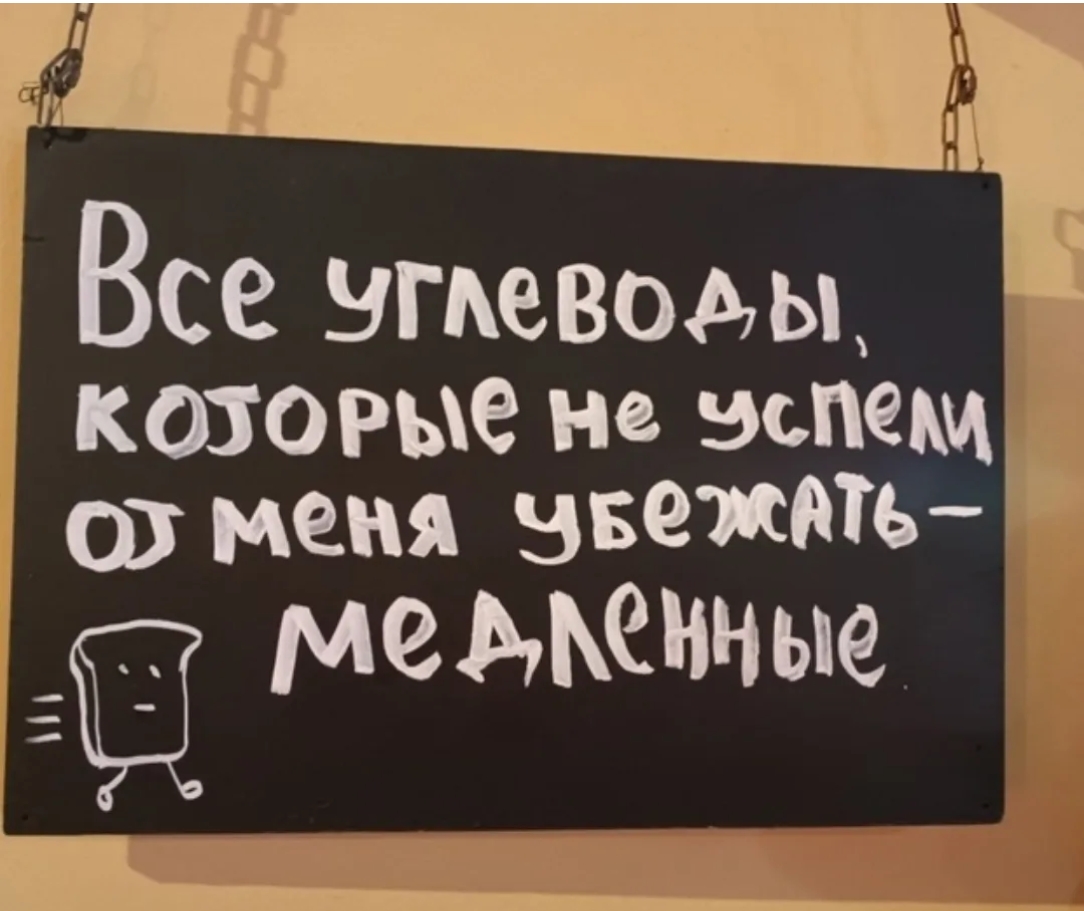 Все углеводы,
которые не успели
от меня убежать—
медленные.